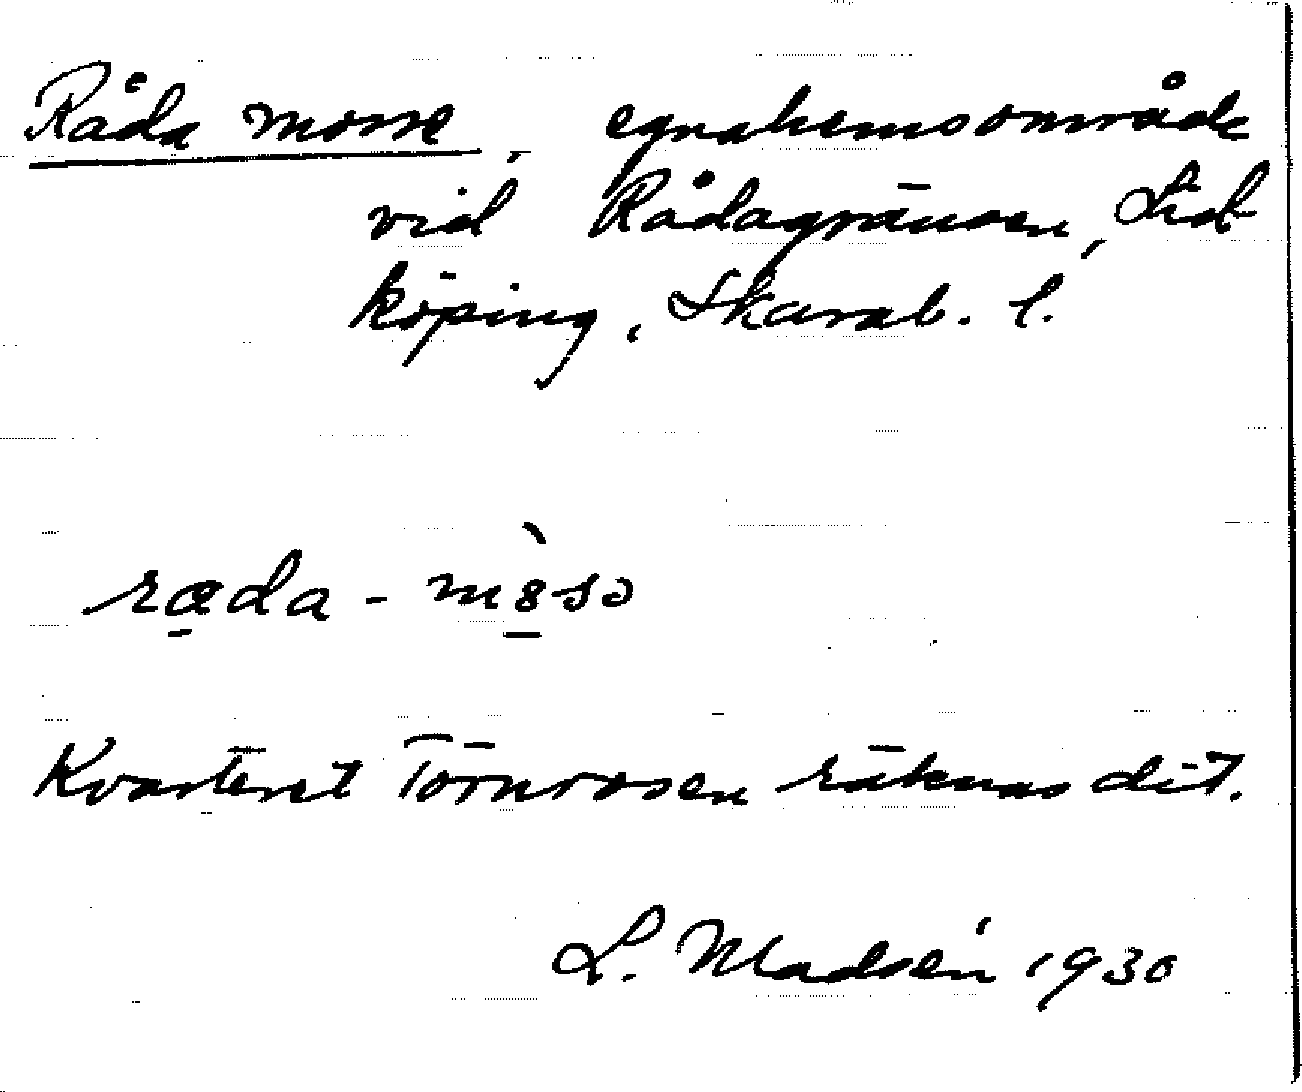 Råda mosse, egnahemsområde
vid Rådagränsen, Lid-
köping, Skarab. l.
ræda - mòso
Kvarteret Törnrosen räknas dit.
L. Madsén 1930